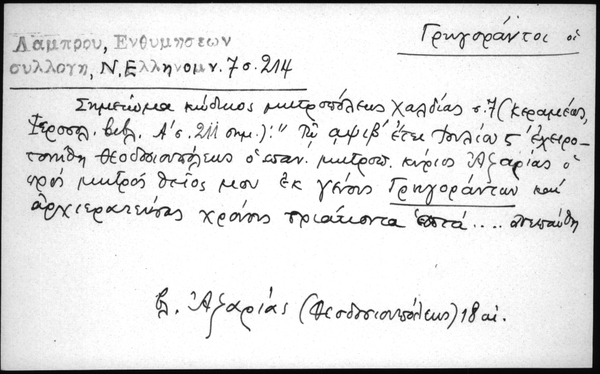 Γρηγοράντοι οἱ
Λάμπρου, Ενθυμησεων
συλλογη, Ν. Ελληνομν. 7 σ. 214
Σημείωμα κώδικος μητροπόλεως Χαλδίας σ. 7 (Κεραμέως,
Ἱεροσολ. βιβλ. Α' σ. 211 σημ.): "Τῷ αψιβ' ἔτει Ἰουλίου 5 ἐχειρο-
τονήθη Θεοδοσιουπόλεως ὁ παν. μητροπ. κύριος Ἀζαρίας ὁ
πρός μητρός θεῖος μου ἐκ γένους Γρηγοράντων καί
ἀρχιερατεύσας χρόνους τριάκοντα ἑπτά .... ἀνεπαύθη
βλ. Ἀζαρίας (Θεοδοσιουπόλεως) 18 αἰ.